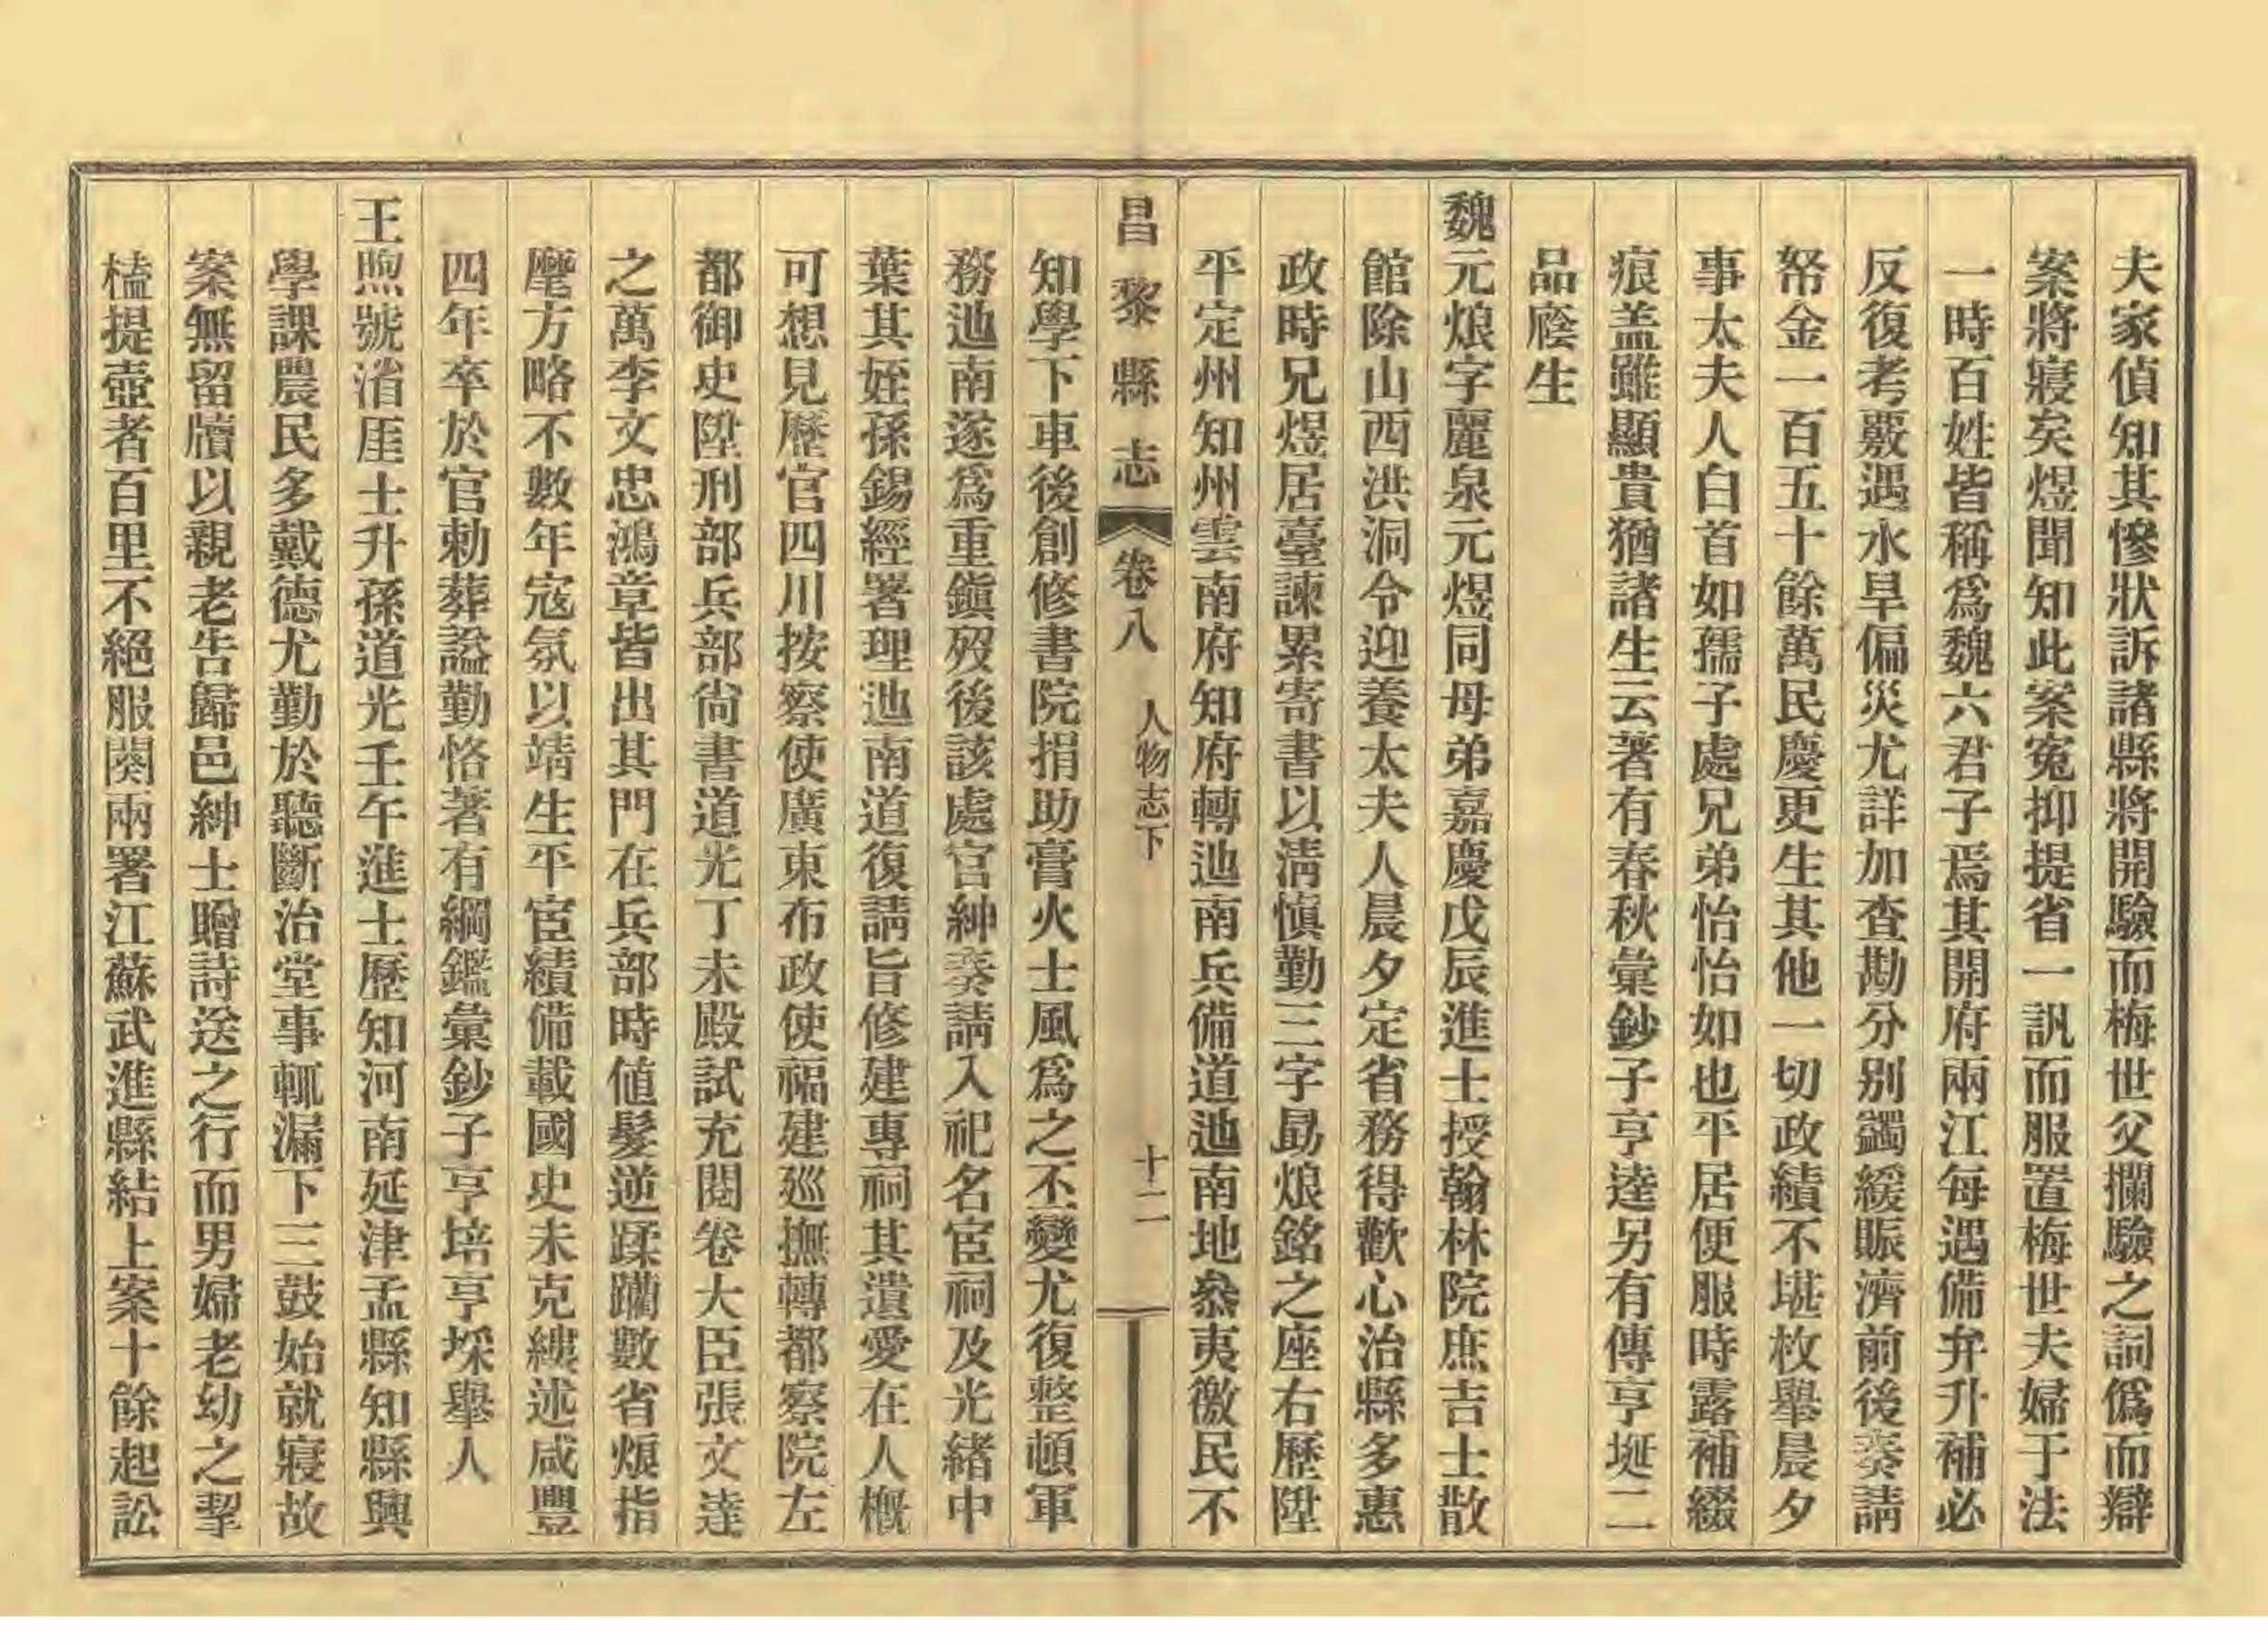 夫家偵知其慘狀訴諸縣將開驗而梅世父攔驗之詞僞而辯
案將寢矣煜聞知此案寃抑提省一訊而服置梅世夫婦于法
一時百姓皆稱爲魏六君子焉其開府兩江每遇備弁升補必
反復考覈遇水旱偏災尤詳加查勘分別蠲緩賑濟前後奏請
帑金一百五十餘萬民慶更生其他一切政績不堪枚舉晨夕
事太夫人白首如孺子處兄弟怡怡如也平居便服時露補綴
痕盖雖顯貴猶諸生云著有春秋彙鈔子亨逵另有傳亨埏二
品廕生
魏元烺字麗泉元煜同母弟嘉慶戊辰進士授翰林院庶吉士散
館除山西洪洞令迎養太夫人晨夕定省務得歡心治縣多惠
政時兄煜居臺諫累寄書以淸愼勤三字勗烺銘之座右歷陞
平定州知州雲南府知府轉迆南兵備道迆南地叅夷徼民不
昌黎縣志
卷八
人物志下
十二
知學下車後創修書院捐助膏火士風爲之丕變尤復整頓軍
務迆南遂爲重鎭歿後該處官紳奏請入祀名宦祠及光緖中
葉其姪孫錫經署理迆南道復請旨修建專祠其遺愛在人槪
可想見歷官四川按察使廣東布政使福建巡撫轉都察院左
都御史陞刑部兵部尙書道光丁未殿試充閱卷大臣張文達
之萬李文忠鴻章皆出其門在兵部時値髮逆蹂躪數省煩指
麾方略不數年寇氛以靖生平宦績備載國史未克縷述咸豐
四年卒於官勅葬謚勤恪著有綱鑑彙鈔子亨培亨埰舉人
王煦號湝厓士升孫道光壬午進士歷知河南延津孟縣知縣興
學課農民多戴德尤勤於聽斷治堂事輒漏下三鼓始就寢故
案無留牘以親老告歸邑紳士贈詩送之行而男婦老幼之挈
榼提壺者百里不絕服闋兩署江蘇武進縣結上案十餘起訟